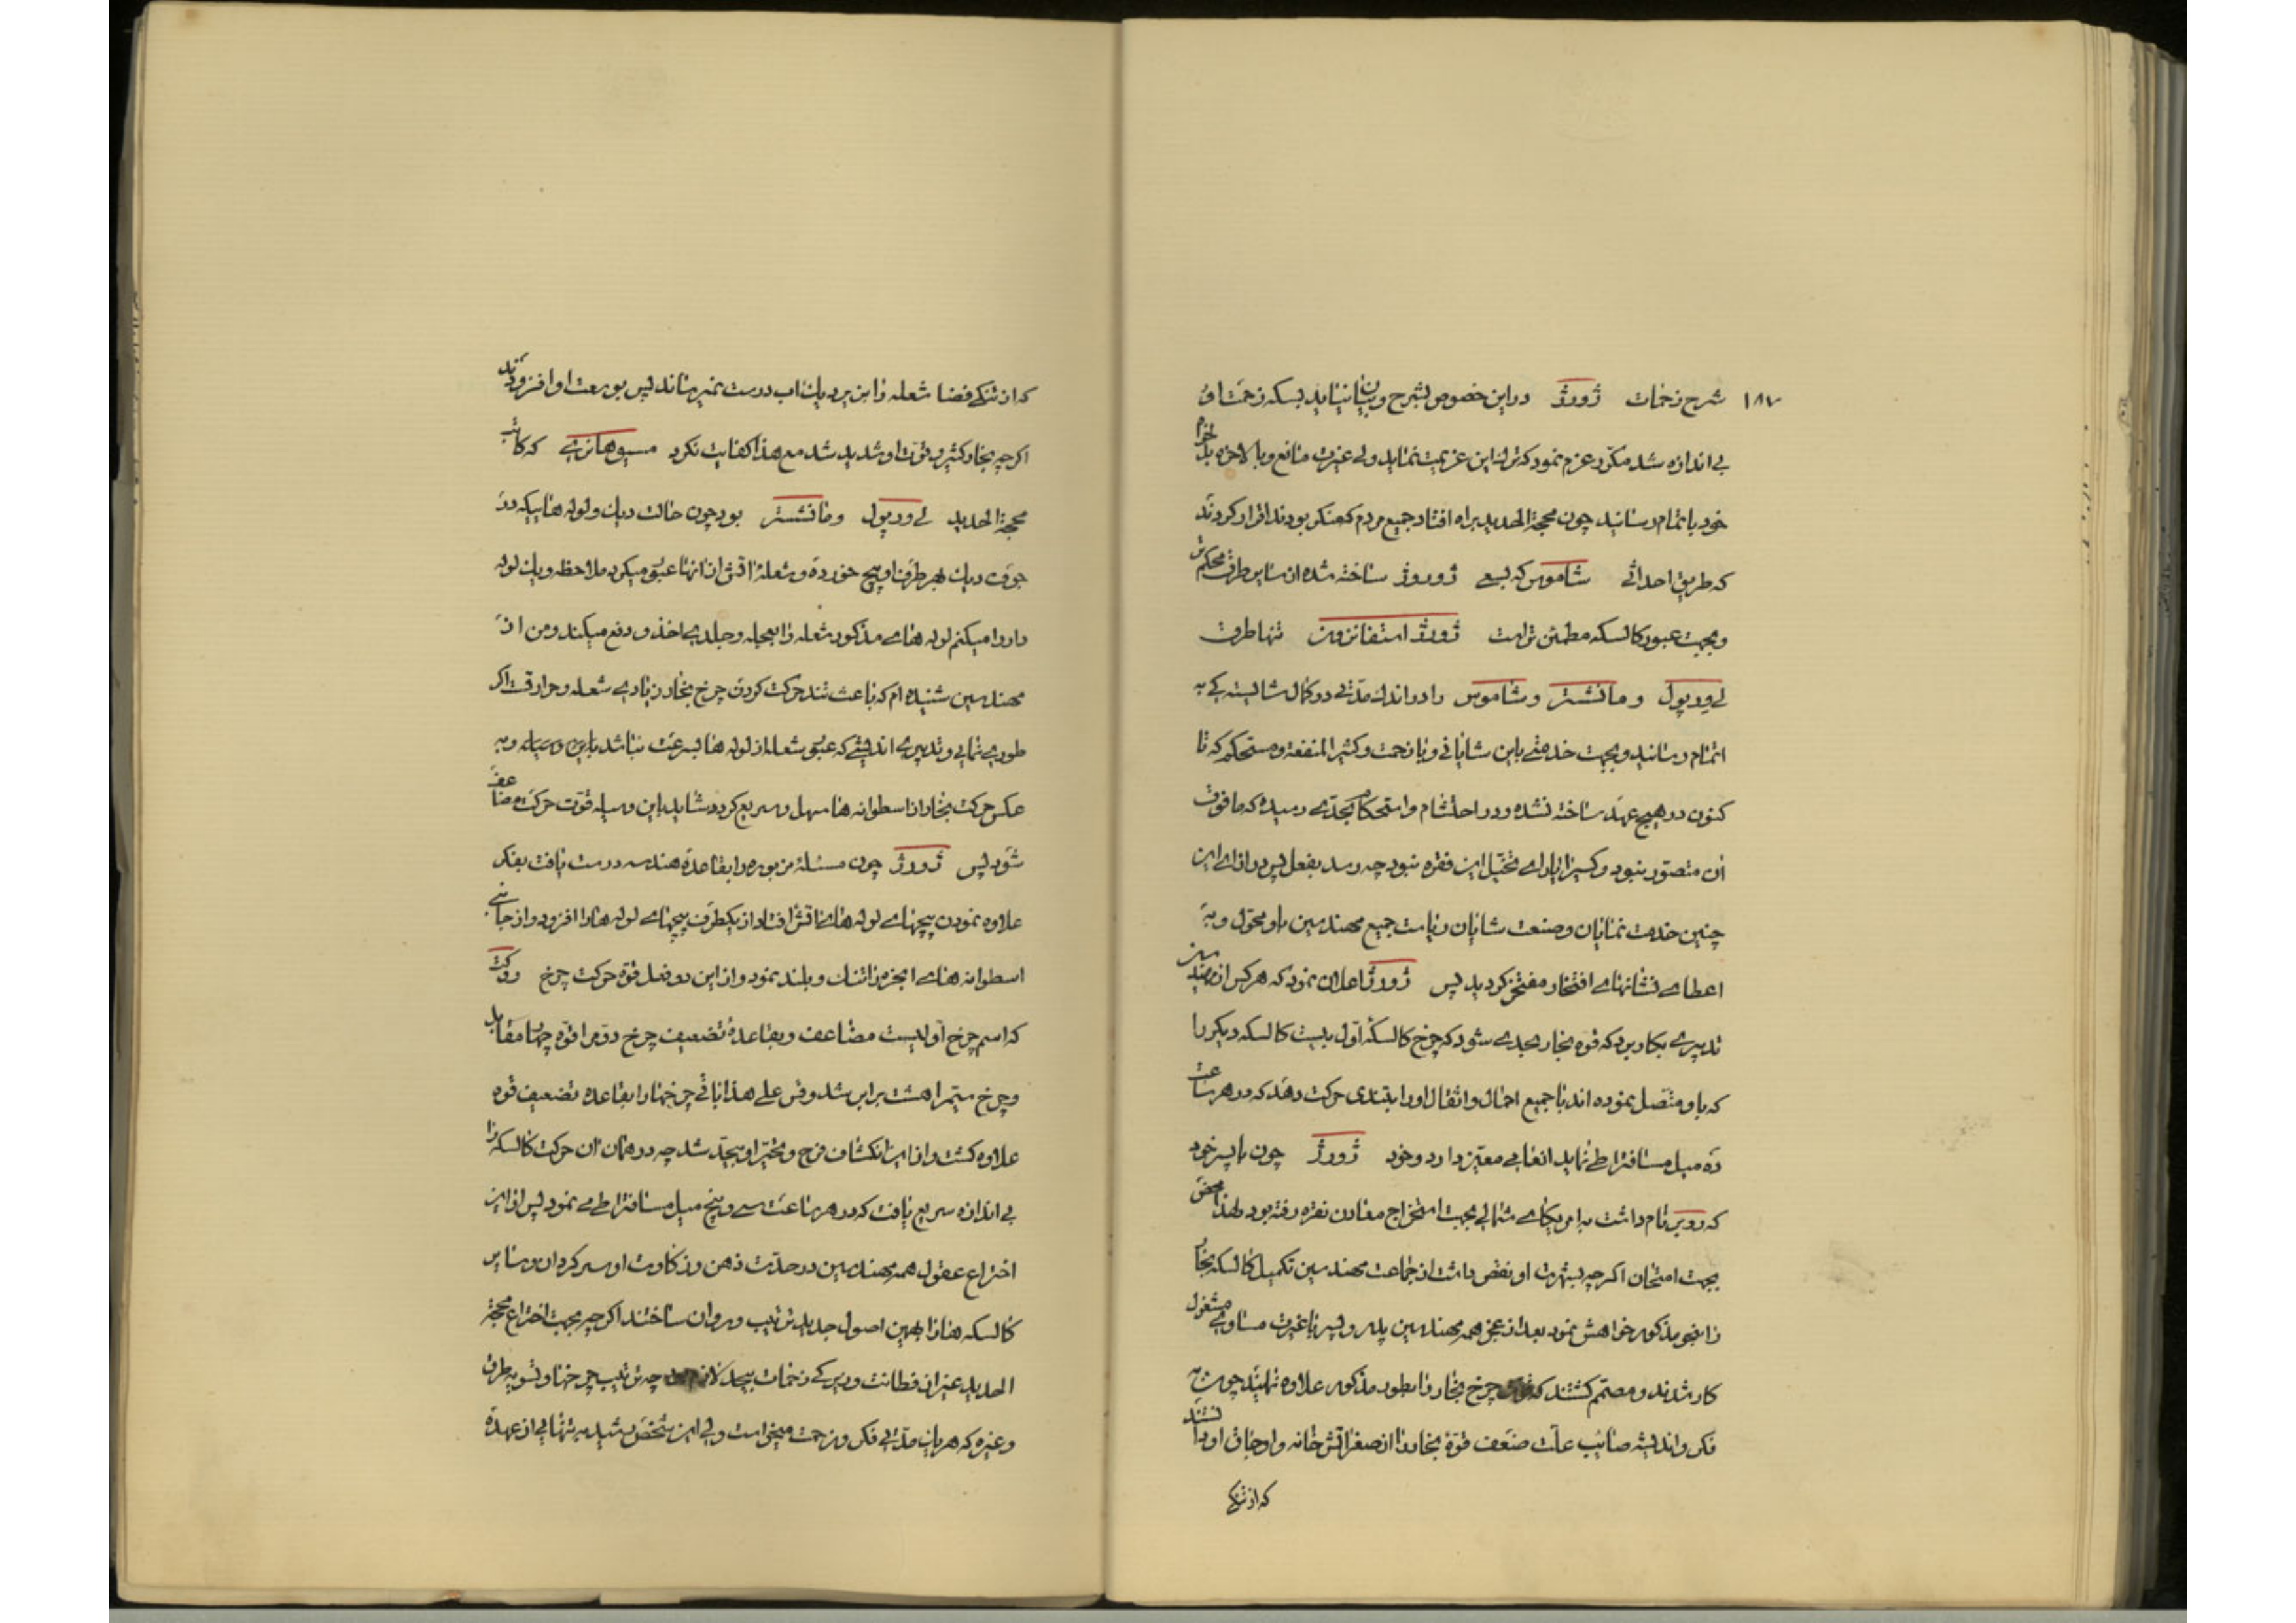 ۱۸۷
شرح زحمات ژورژ دراین خصوص بشرح و بیان نیاید بسکه زحمت او
بی اندازه شد مکرر عزم نمود که ترک این عزیمت نماید ولی غیرت مانع و بالاخره
خود باتمام رسانید چون محجة الحدید براه افتاد جمیع مردم که منکر بودند اقرار کردند
که طریق احداثی شاموس که بسعی ژورژ ساخته شده از سایر طرق محکم تر
و بجهت عبور کالسکه مطمئن تر است ژورژ استفانزون تنها طرق
لی ورپول و مانشستر و شاموس را در اندک مدتی در کمال شایستهکی به
اتمام رسانید و بجهت خدمتی باین شایانی و با زحمت و کثیر المنفعة و مستحکم که تا
کنون در هیچ عهد ساخته نشده و در احتشام و استحکام بحدی رسیده که مافوق
آن متصور نبود و کسیرا یارای تخیل این فقره نبود چه رسد بفعل پس در ازای این
چنین خدمت نمایان و صنعت شایان ریاست جمیع مهندسین باو محول و به
اعطای نشانهای افتخار مفتخر کردید پس ژورژ اعلان نمود که هرکس از مهندسین
تدبیری بکار برد که قوه بخار بحدی شود که چرخ کالسکهٔ اول بیست کالسکه دیکر را
که باو متصل نموده اند با جمیع احمال و اثقال او را بتندی حرکت دهد که در هر ساعت
ده میل مسافترا طی نماید انعامی معین دارد و خود ژورژ چون با پسر خود
که روبر نام داشت به امریکای شمالی بجهت استخراج معادن نقره رفته بود لهذا محض
بجهت امتحان اکرچه بشهرت او نقص داشت از جماعت مهندسین تکمیل کالسکه بخار
را بنحو مذکور خواهش نمود بعد از عجز همه مهندسین پدر و پسر با غیرت مساوی مشغول
کار شدند و مصمم کشتند که چرخ بخار را بطور مذکور علاوه نمایند چون به
فکر و اندیشه صائب علت ضعف قوهٔ بخار را از صغر آتش خانه و اوجاق او دانستند
که از تنکی
که از تنکی فضا شعله را بزیر دیک آب درست نمیرساند پس بوسعت او افزودند
اکرچه بخار کثیر و قوت او شدید شد مع هذا کفایت نکرد مسیو هانری که کاتب
محجة الحدید لی ورپول و مانشستر بود چون حالت دیک و لوله هاییکه در
جوف دیک بهر طرف او پیچ خورده و شعلهٔ آتش از آنها عبور میکرد ملاحظه و یک لوله
دار را میکنم لوله های مذکور شعله را بعجله و جلدی اخذ و دفع میکند و من از
مهندسین شنیده ام که باعث تند حرکت کردن چرخ بخار زیادی شعله و حرارتست اکر
طوری نمایی و تدبیری اندیشی که عبور شعله از لوله ها بسرعت نباشد باین وسیله و به
عکس حرکت بخار از اسطوانه ها سهل و سریع کردد شاید باین وسیله قوت حرکت مضاعف
شود پس ژورژ چون مسئله مزبوره را بقاعدهٔ هندسه درست یافت بفکر
علاوه نمودن پیچهای لوله های آتش افتاد از یکطرف پیچهای لوله ها را افزود و از جانبی
اسطوانه های ابخره را تنک و بلند نمود و از این دو فعل قوهٔ حرکت چرخ روکت
که اسم چرخ اولیست مضاعف و بقاعدهٔ تضعیف چرخ دوم را قوه چهار مقابل
و چرخ سیم را هشت برابر شد و قس علی هذا باقی چرخها را بقاعده تضعیف قوه
علاوه کشت و از این انکشاف فرح و تحیر او بیحد شد چه در همان آن حرکت کالسکه را
بی اندازه سریع یافت که در هر ساعت سی و پنج میل مسافترا طی می نمود پس از این
اختراع عقول همه مهندسین در حدت ذهن و ذکاوت او سرکردان و سایر
کالسکه ها را بهمین اصول جدید ترتیب و روان ساختند اکرچه بجهت اختراع محجة
الحدید غیر از فطانت و زیرکی زحمات بیحد چه ترتیب چرخها و تسویه طرق
و غیره که هر یک مدتی فکر و زحمت میخواست ولی این شخص رشید به تنهایی از عهده